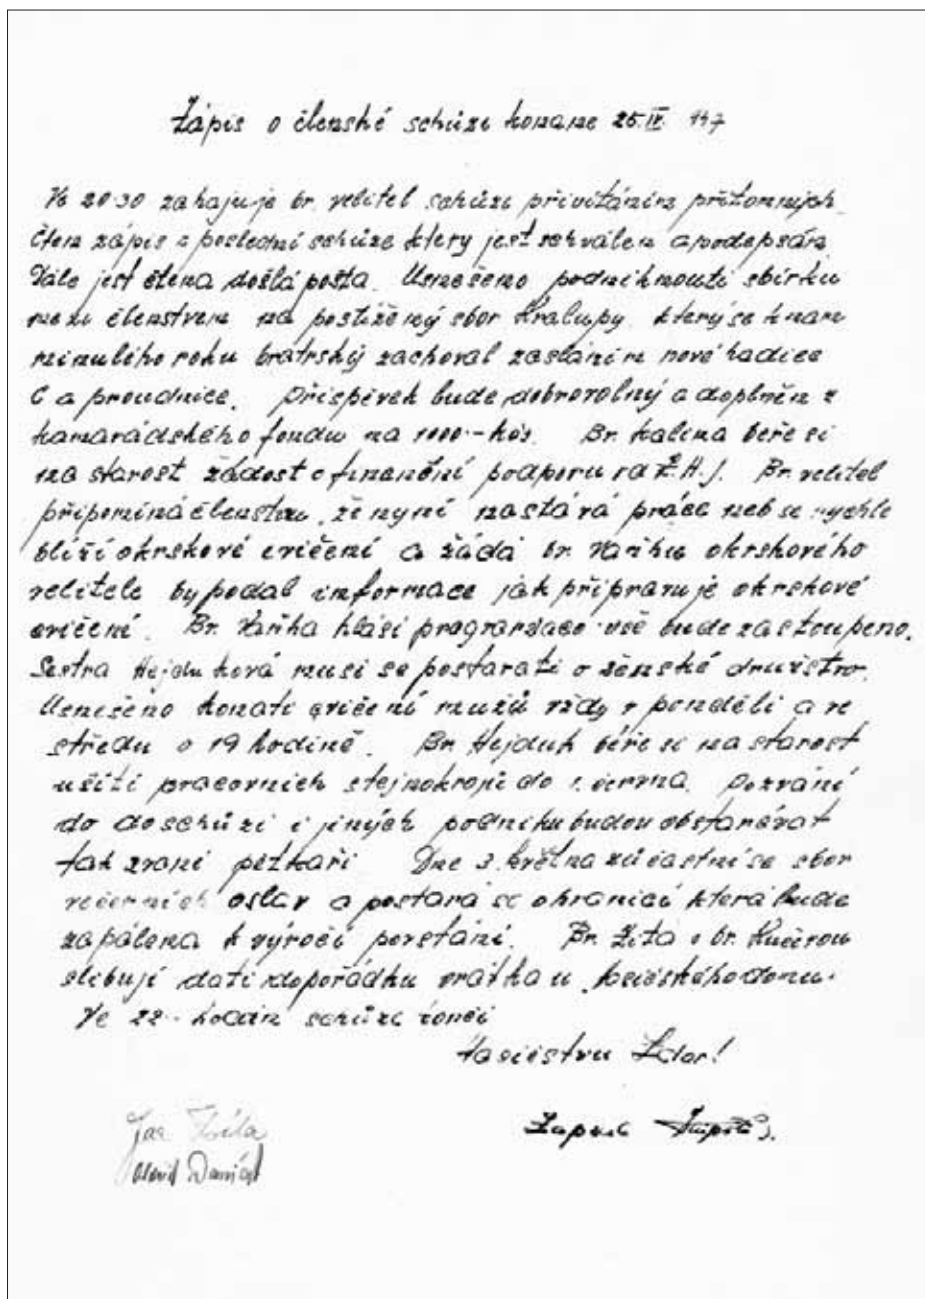 Zápis o členské schůzi konane 25.IV. 947
Ve 20·30 zahajuje br. velitel schůzi přivítáním přítomných.
Čten zápis z poslední schůze ktery jest schválen a podepsán
Dále jest čtena došlá pošta. Usnešeno podniknouti sbírku
mezi členstvem na postižený sbor Kralupy, který se k nam
minulého roku bratrský zachoval zasláním nové hadice
C a proudnice. Příspěvek bude dobrovolný a doplněn z
kamarádského fondu na 1000·- kčs. Br. Kalina béře si
na starost žádost o finanční podporu Br. velitel
připomíná členstvu, že nyní nastává práce neb se rychle
blíží okrskové cvičení a žádá br. Vaňhu okrskového
velitele by podal informace jak připravuje okrskové
cvičení. Br. Vaňha hlásí program vše bude zastoupeno.
Sestra Hejduková musí se postarati o ženské družstvo.
Usnešeno konati cvičení mužů vždy v pondělí a ve
středu o 19 hodině. Br. Hejduk béře si na starost
ušití pracovních stejnokrojů do 1. června. Pozvání
do do schůzí i jiných podniku budou obstarávat
tak zvaní pětkaři Dne 3. května zúčastní se sbor
večerních oslav a postará se o hranici která bude
zapálena k výročí povstání. Br. Zíta s br. Kučerou
slibují dáti do pořádku vrátka u hasičského domu.
Ve 22·- hodin schůze končí
Hasičstvu Zdar!
Zapsal
Jar